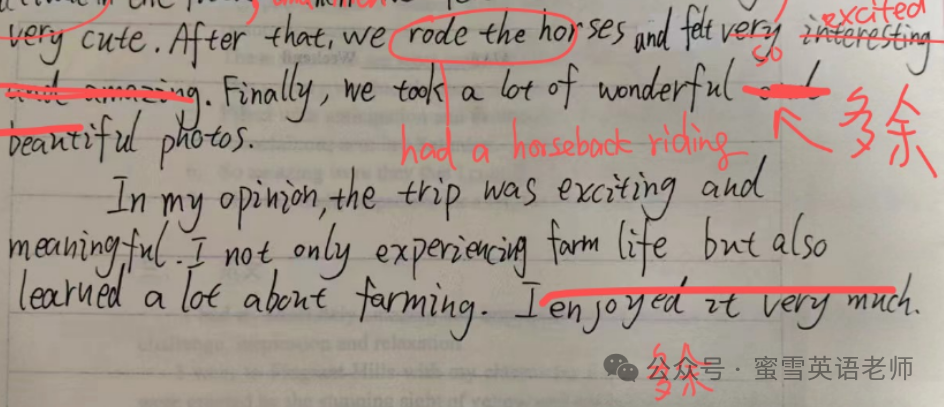 very cute. After that, we rode the horses and felt very interesting
excited
so
and amazing. Finally, we took a lot of wonderful and
多余
beautiful photos.
had a horseback riding
In my opinion, the trip was exciting and
meaningful. I not only experiencing farm life but also
learned a lot about farming. I enjoyed it very much.
多余
公众号·蜜雪英语老师